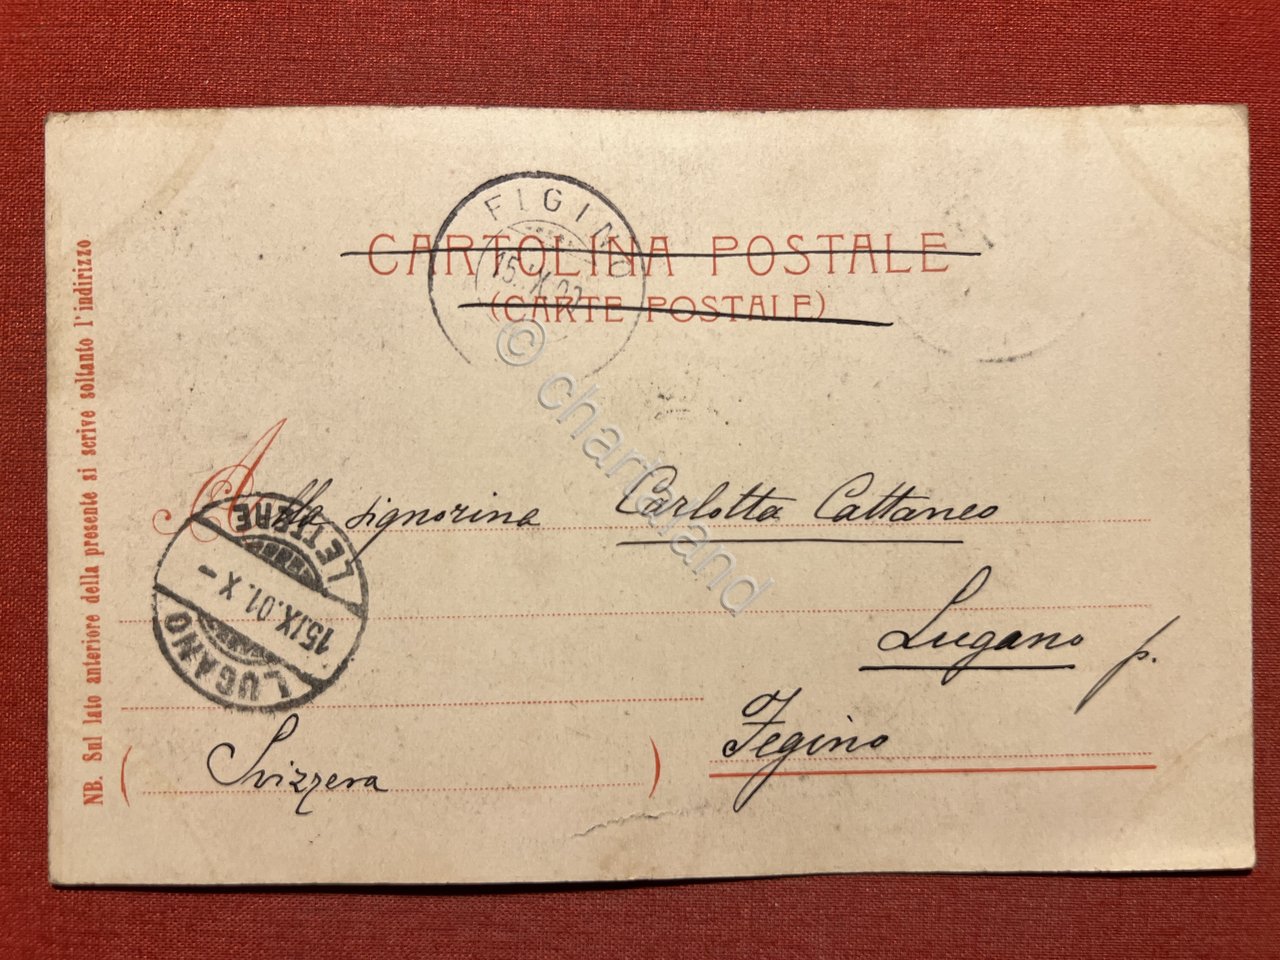 FIGINO
15.IX.02
CARTOLINA POSTALE
(CARTE POSTALE)
NB. Sul lato anteriore della presente si scrive soltanto l'indirizzo
Alla signorina Carlotta Cattaneo
LUGANO
15.IX.01.X-
LETTERE
Lugano p.
Fegino
(Svizzera)
© chartaland